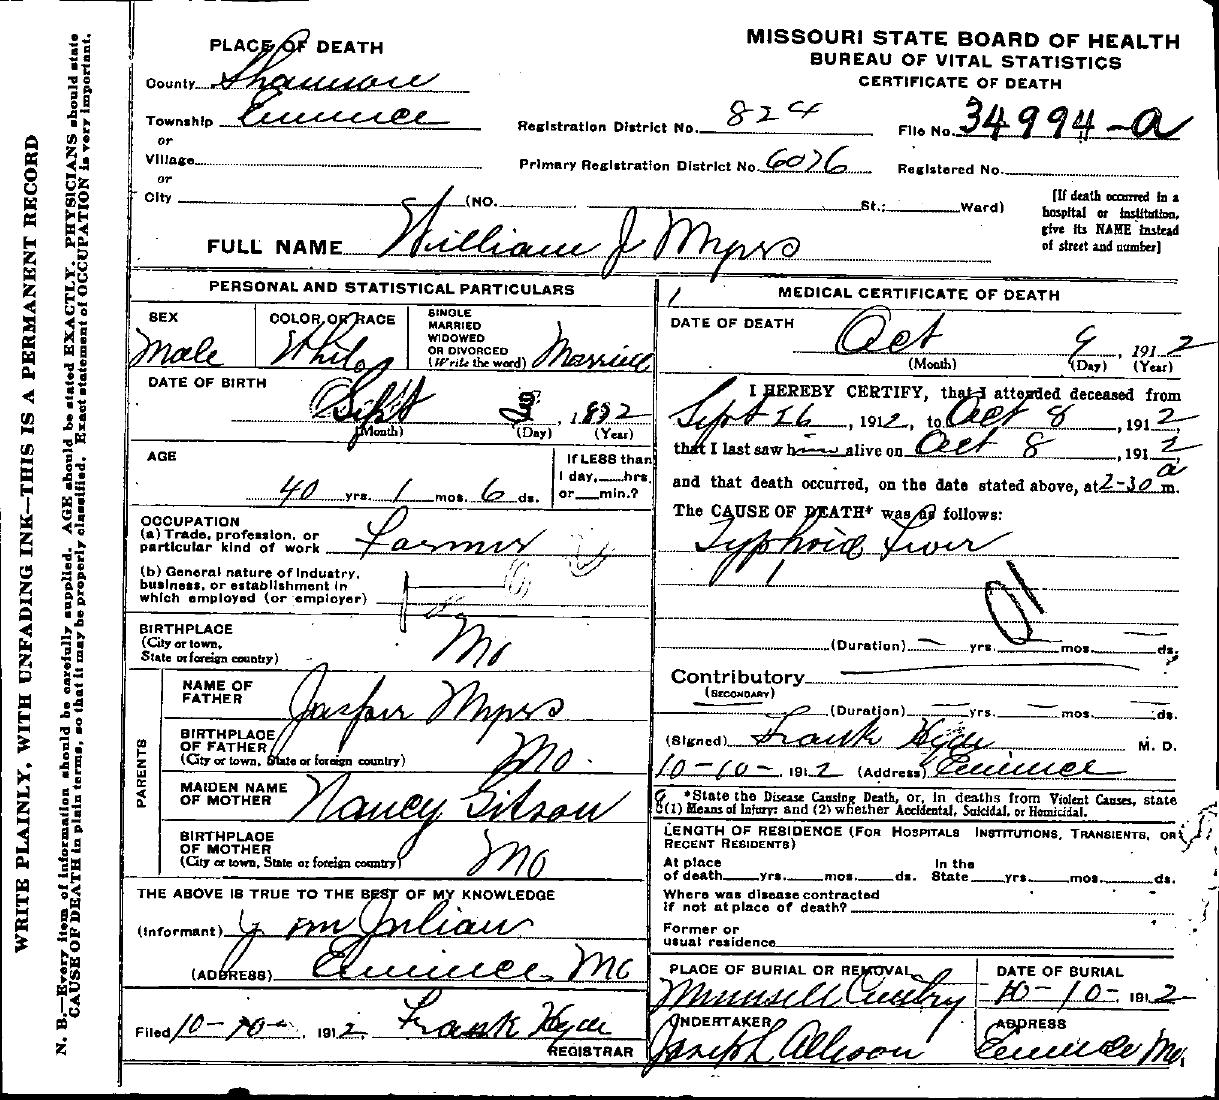 MISSOURI STATE BOARD OF HEALTH
BUREAU OF VITAL STATISTICS
CERTIFICATE OF DEATH
PLACE OF DEATH
County Shannon
Township Eminence
or
Village
or
City (NO. St.; Ward)
Registration District No. 824
File No. 34994-a
Primary Registration District No. 6076
Registered No.
[If death occurred in a
hospital or institution,
give its NAME instead
of street and number]
FULL NAME William J Myers
PERSONAL AND STATISTICAL PARTICULARS
SEX
Male
COLOR OR RACE
White
SINGLE
MARRIED
WIDOWED
OR DIVORCED
(Write the word) Married
DATE OF BIRTH
Sept , 1
(Month) (Day) (Year)
AGE
40 yrs. 1 mos. 6 ds.
If LESS than
1 day, hrs.
or min.?
OCCUPATION
(a) Trade, profession, or
particular kind of work Farmer
(b) General nature of Industry,
business, or establishment in
which employed (or employer)
BIRTHPLACE
(City or town,
State or foreign country) Mo
PARENTS
NAME OF
FATHER Jasper Myers
BIRTHPLACE
OF FATHER
(City or town, State or foreign country) Mo.
MAIDEN NAME
OF MOTHER Nancy
BIRTHPLACE
OF MOTHER
(City or town, State or foreign country) Mo
THE ABOVE IS TRUE TO THE BEST OF MY KNOWLEDGE
(Informant) Julian
(ADDRESS) Eminence Mo
Filed 10-10- , 1912 Frank Hyde
REGISTRAR
MEDICAL CERTIFICATE OF DEATH
DATE OF DEATH
Oct 9 , 1912
(Month) (Day) (Year)
I HEREBY CERTIFY, that I attended deceased from
Sept 26 , 1912, to Oct 8 , 1912
that I last saw him alive on Oct 8 , 1912,
and that death occurred, on the date stated above, at 2-30 a m.
The CAUSE OF DEATH* was as follows:
Typhoid Fever
01
(Duration) yrs. mos. ds.
Contributory
(SECONDARY)
(Duration) yrs. mos. ds.
(Signed) Frank Hyde, M. D.
10-10- , 1912 (Address) Eminence
*State the Disease Causing Death, or, in deaths from Violent Causes, state
(1) Means of Injury; and (2) whether Accidental, Suicidal, or Homicidal.
LENGTH OF RESIDENCE (FOR HOSPITALS INSTITUTIONS, TRANSIENTS, OR
RECENT RESIDENTS)
At place
of death yrs. mos. ds.
In the
State yrs. mos. ds.
Where was disease contracted
if not at place of death?
Former or
usual residence
PLACE OF BURIAL OR REMOVAL
DATE OF BURIAL
10-10- 1912
UNDERTAKER
Joseph Allison
ADDRESS
Eminence Mo.
WRITE PLAINLY, WITH UNFADING INK—THIS IS A PERMANENT RECORD
N. B.—Every item of information should be carefully supplied. AGE should be stated EXACTLY. PHYSICIANS should state
CAUSE OF DEATH in plain terms, so that it may be properly classified. Exact statement of OCCUPATION is very important.